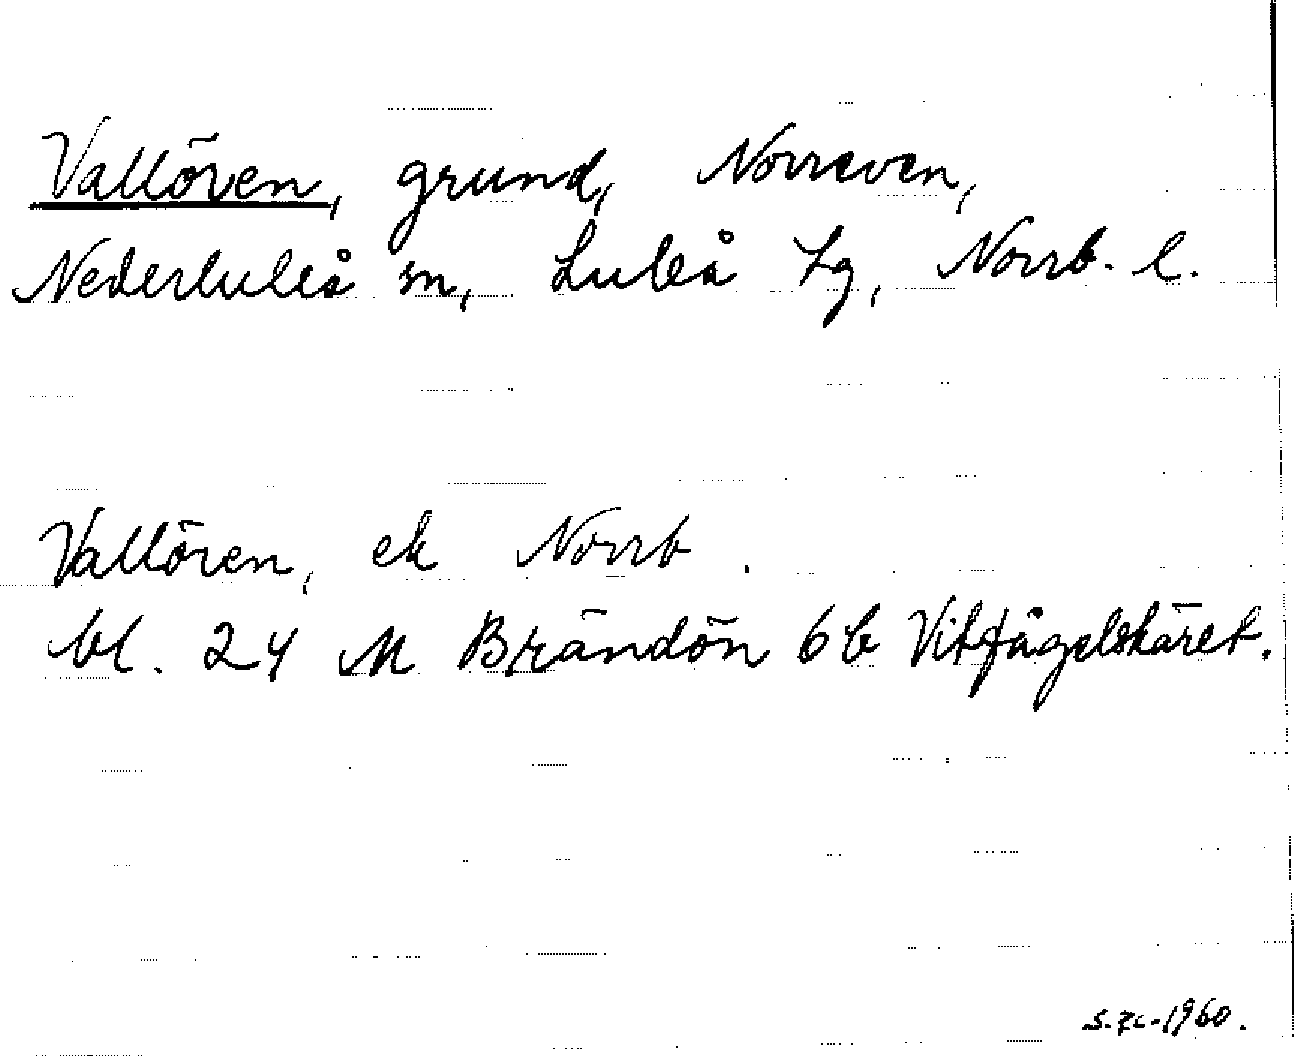 Vallören, grund, Norreven,
Nederluleå sn, Luleå lg, Norrb. l.
Vallören, ek Norrb.
bl. 24 M Brändön 6b Vitfågelskäret.
1960.